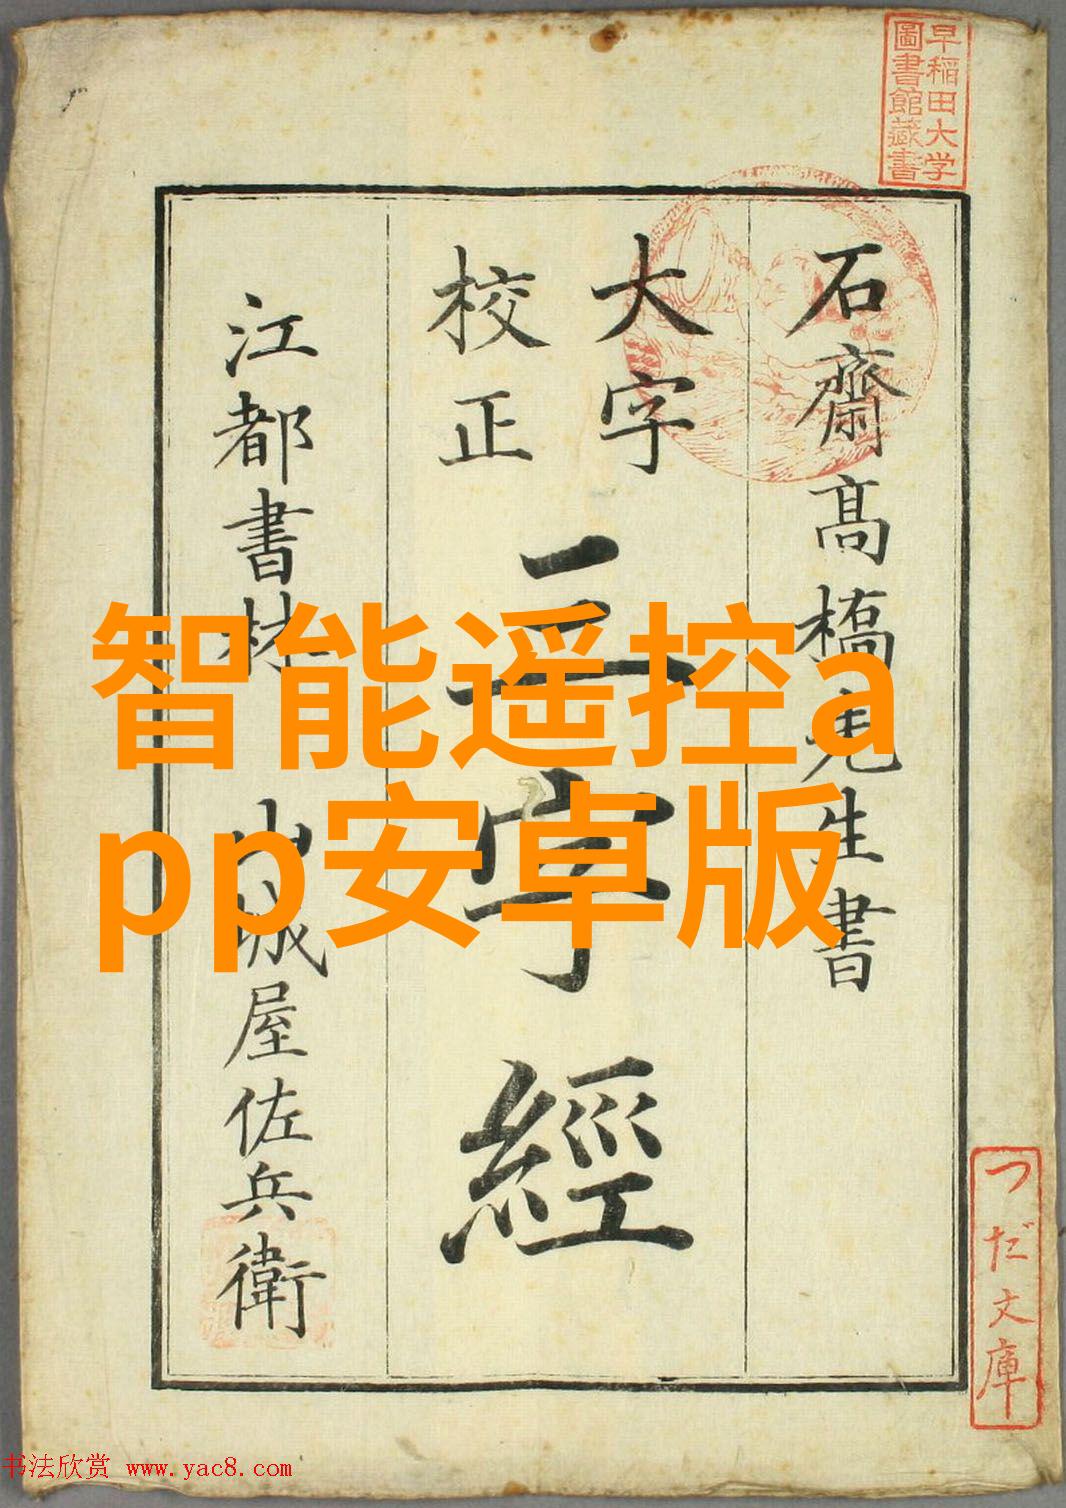 早稲田大学
圖書館藏書
石齋髙橋先生書
大字
校正
三字經
江都書林 山城屋佐兵衛
智能遥控a
pp安卓版
つだ文庫
书法欣赏 www.yac8.com